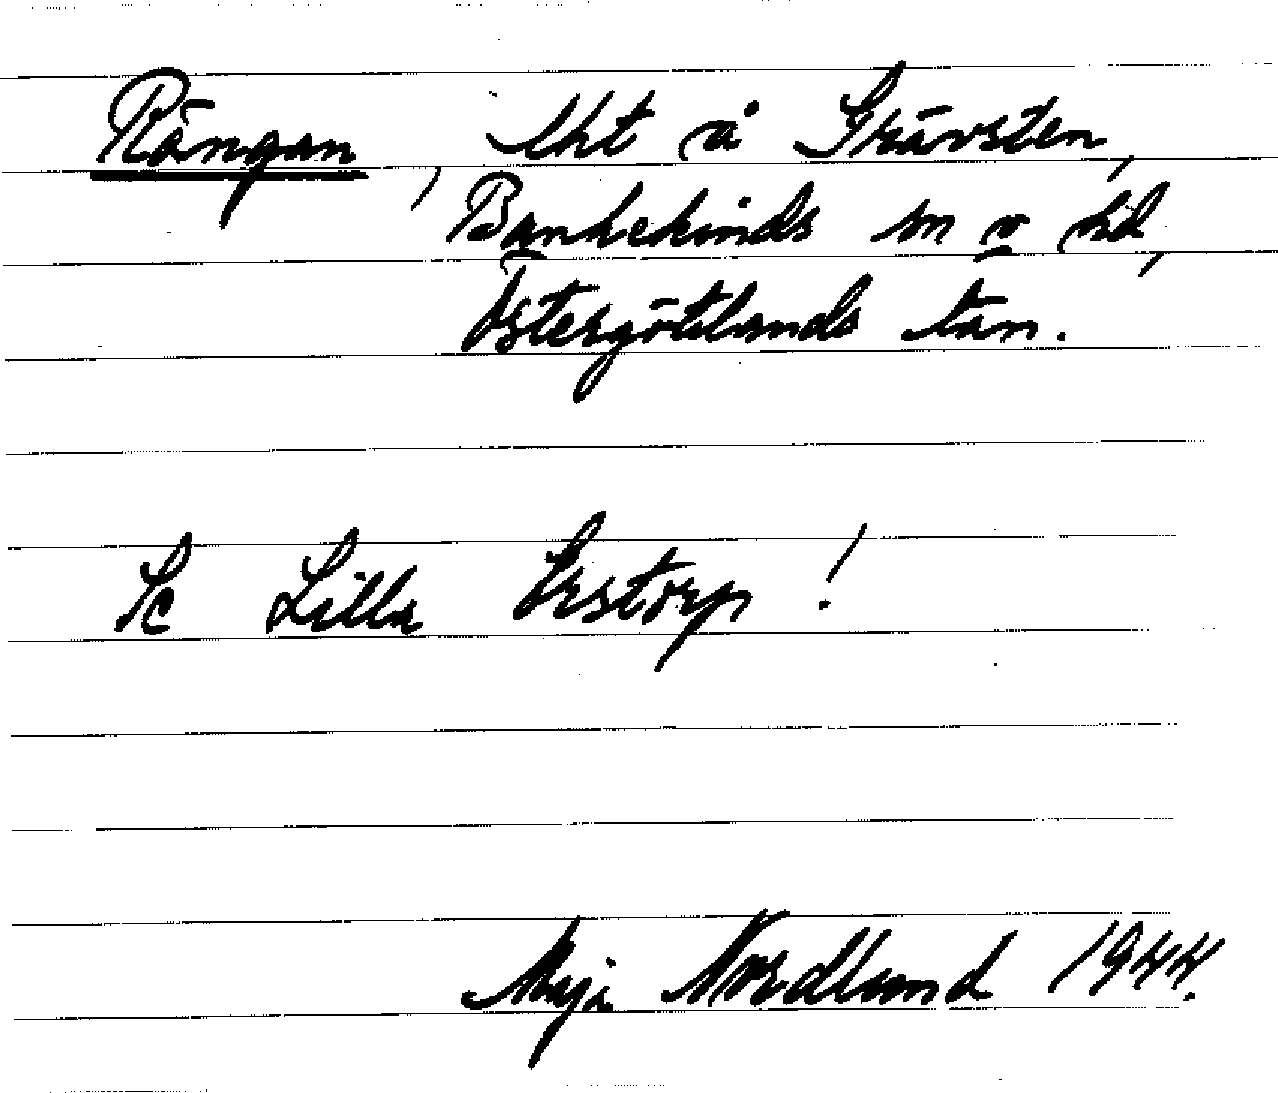 Rängan, lht å Grävsten,
Bankekinds sn o hd,
Östergötlands län.
Se Lilla Erstorp!
Maja Nordlund 1944.